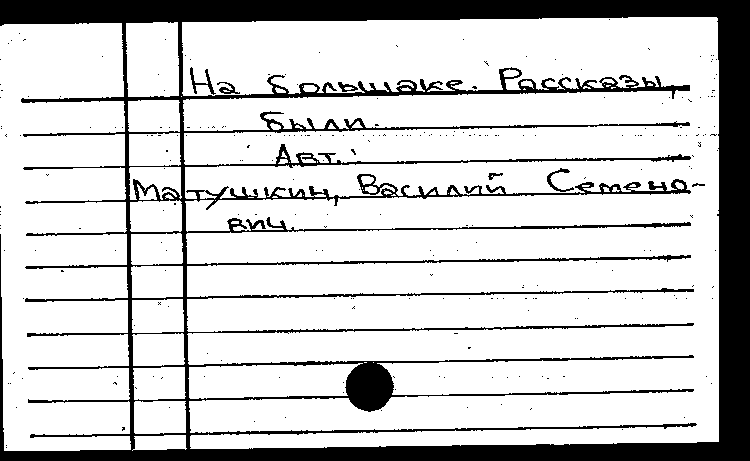 На большаке. Рассказы,
были.
Авт.:
Матушкин, Василий Семено-
вич.